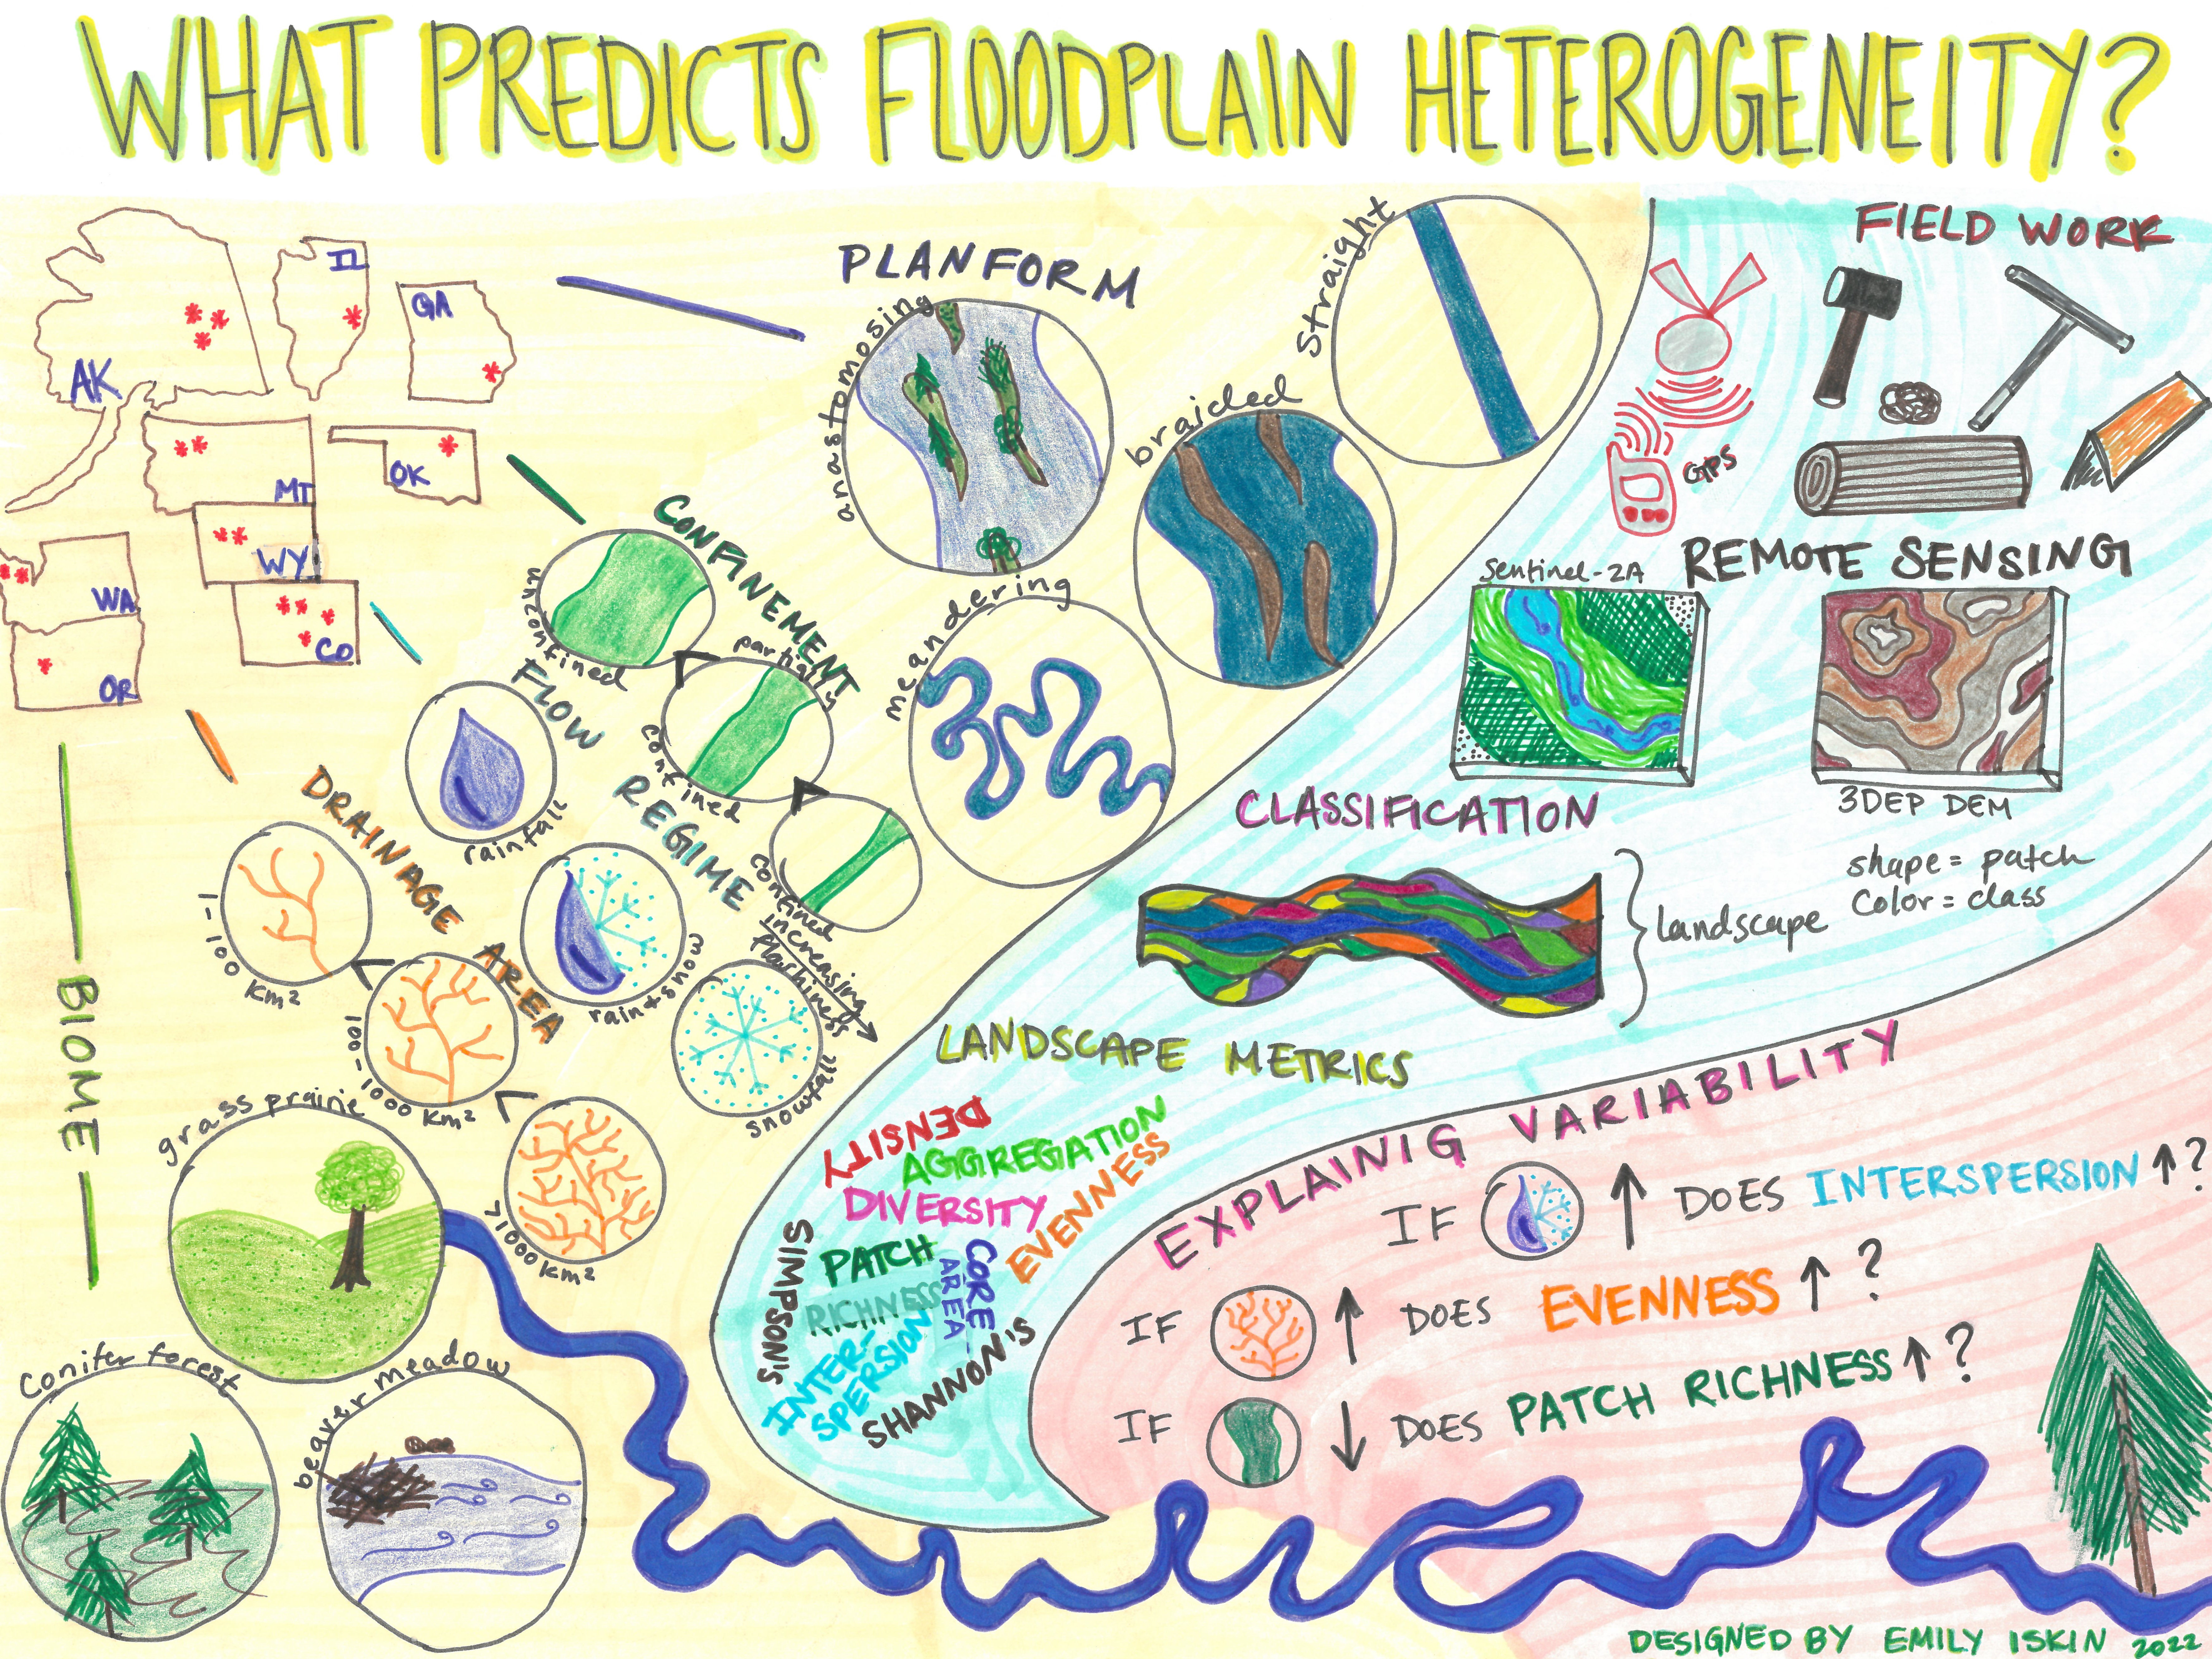 WHAT PREDICTS FLOODPLAIN HETEROGENEITY?
AK
IL
GA
MT
OK
WY
WA
CO
OR
PLANFORM
anastomosing
straight
braided
meandering
CONFINEMENT
unconfined
partially
confined
confined
FLOW
REGIME
rainfall
rain + snow
snowfall
increasing
flashiness
DRAINAGE AREA
1-100 km²
100-1000 km²
>1000 km²
BIOME
grass prairie
conifer forest
beaver meadow
FIELD WORK
GPS
REMOTE SENSING
Sentinel-2A
3DEP DEM
CLASSIFICATION
shape = patch
color = class
landscape
LANDSCAPE METRICS
DENSITY
AGGREGATION
DIVERSITY
EVENNESS
SIMPSON'S
PATCH
RICHNESS
CORE
AREA
INTER-
SPERSION
SHANNON'S
EXPLAINIG VARIABILITY
IF ↑ DOES INTERSPERSION ↑?
IF ↑ DOES EVENNESS ↑?
IF ↓ DOES PATCH RICHNESS ↑?
DESIGNED BY EMILY ISKIN 2022